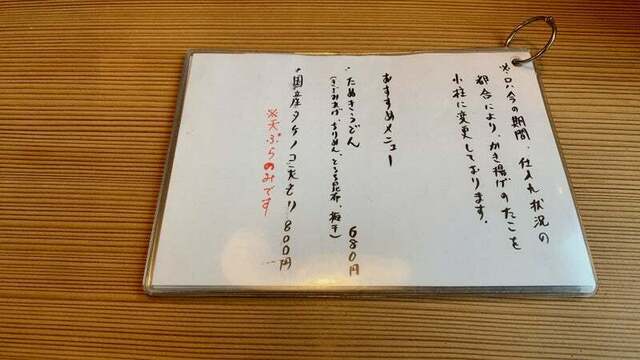 ※只今の期間、仕入れ状況の
都合により、かき揚げのたこを
小柱に変更しております。
おすすめメニュー
・たぬきうどん 680円
(きざみあげ、ちりめん、とろろ昆布、梅干)
・国産タケノコ天もり 800円
※天ぷらのみです